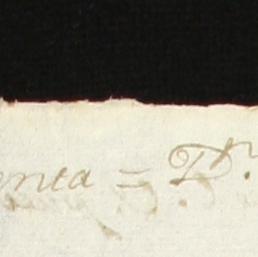 enta = Dr.